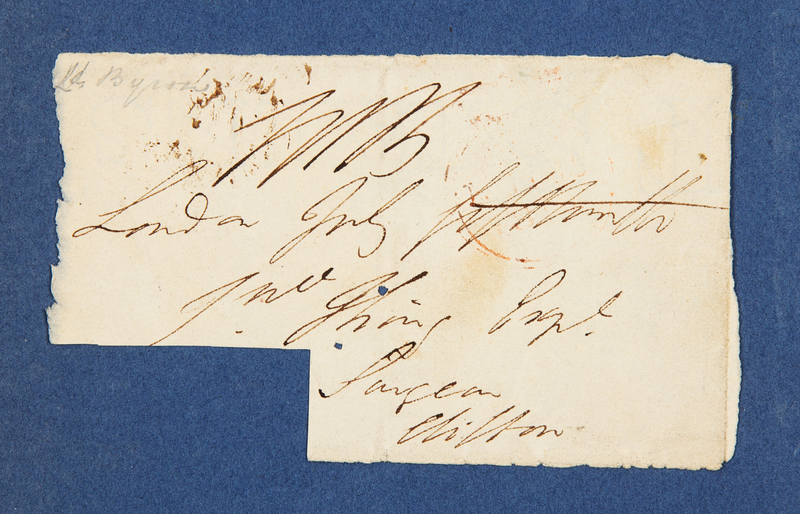 Ld Byron
London July fifteenth
King Esqr.
Surgeon
Clifton